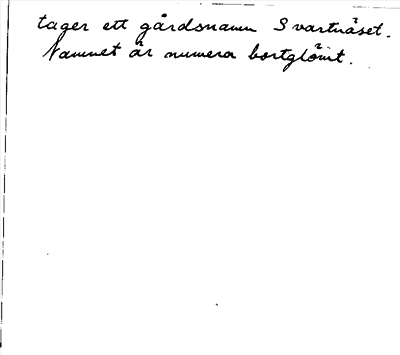 tager ett gårdsnamn Svartnäset.
Namnet är numera bortglömt.